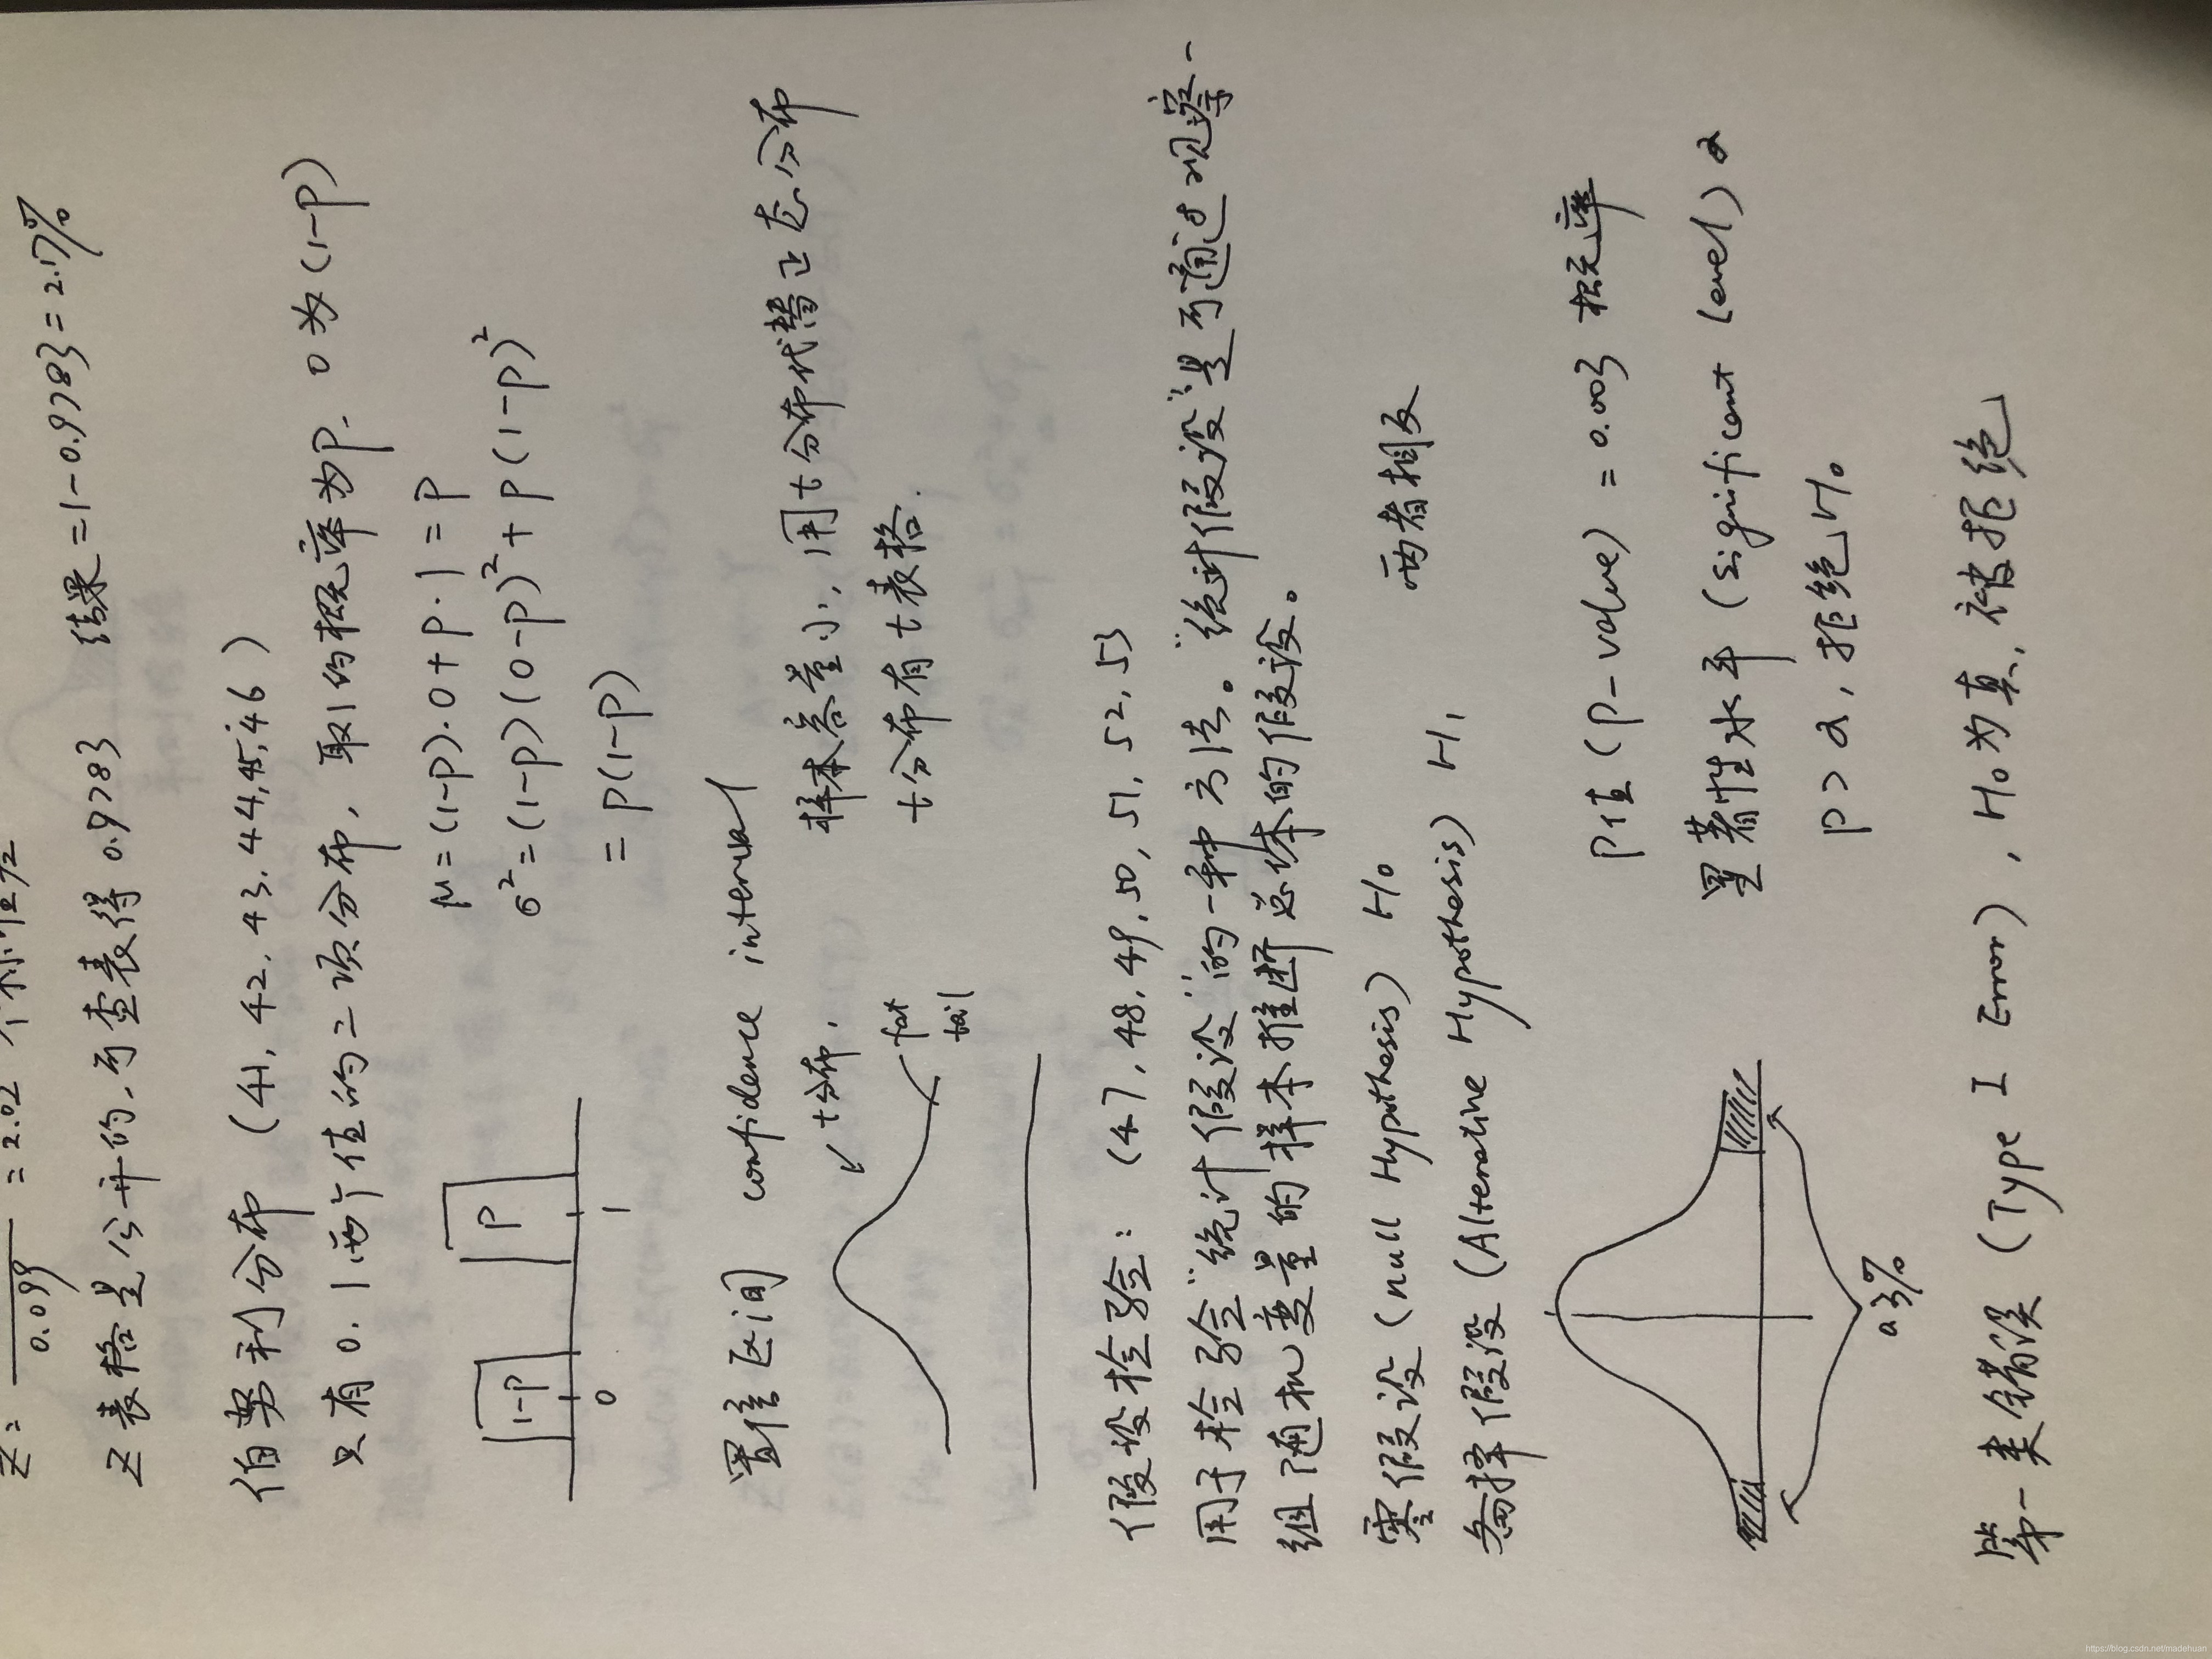 Z = ― = 2.02 个标准差
0.099
Z表格是公开的,可查表得 0.9783 结果=1-0.9783=2.17%
伯努利分布 (41, 42, 43, 44, 45, 46)
只有0.1两个值的二项分布, 取1的概率为P. 0为(1-P)
1-P P
0 1
μ=(1-P)·0+P·1=P
σ²=(1-P)(0-P)²+P(1-P)²
=P(1-P)
置信区间 confidence interval
t分布, 样本容量小,用t分布代替正态分布
fat tail t分布有t表格.
假设检验: (47, 48, 49, 50, 51, 52, 53
用于检验"统计假设"的一种方法。"统计假设"是可通过观察一
组随机变量的样本推断总体的假设。
零假设 (null Hypothesis) H₀ 两者相反
备择假设 (Alternative Hypothesis) H₁
P值 (P-value) = 0.003 概率
显著性水平 (significant level) α
P > α, 拒绝H₀
0.3%
第一类错误 (Type I Error), H₀为真, 被拒绝
https://blog.csdn.net/madehuan